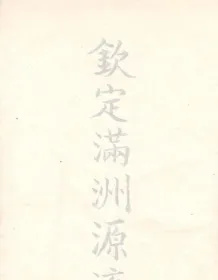 欽定滿洲源